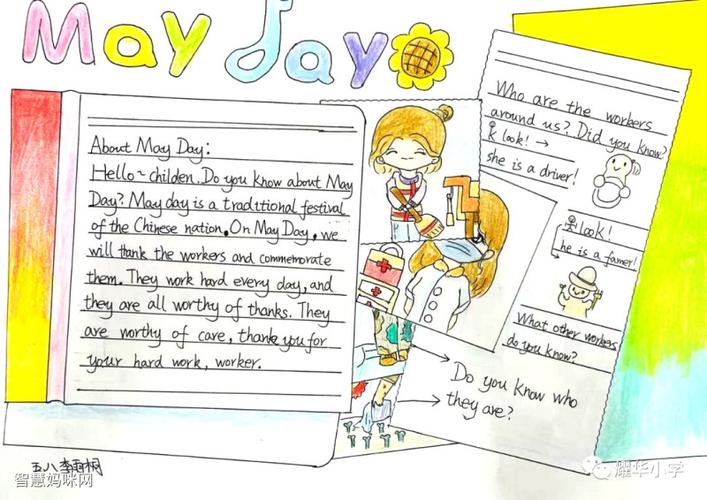 May day
About May Day:
Hello~ childen. Do you know about May
Day? May day is a traditional festival
of the Chinese nation. On May Day, we
will thank the workers and commemorate
them. They work hard every day, and
they are all worthy of thanks. They
are worthy of care, thank you for
your hard work, worker.
Who are the workers
around us? Did you know?
look! →
she is a driver!
look!
he is a famer!
What other workers
do you know?
Do you know who
they are?
五八
智慧妈咪网
耀华小学